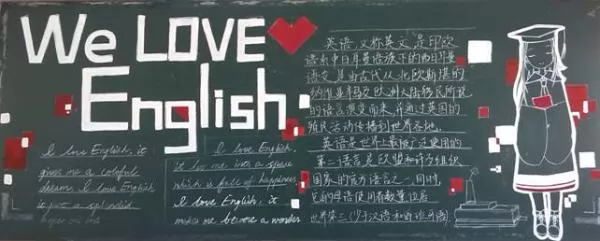 We LOVE
English
I love English, it
gives me a colorful
dream. I love English
it give a splendid
I love English,
it me into a space
which is full of happiness
I love English, it
makes me become a wonder
英语,又称英文,是印欧
语系中日耳曼语族下的西日耳曼
语支,是由古代从北欧斯堪的
纳维亚 及欧洲大陆移民所说
的语言演变而来,并通过英国的
殖民活动传播到世界各地。
英语是世界上最广泛使用的
第二语言,是欧盟和许多组织
国家的官方语言之一,同时,
它的母语使用者数量位居
世界第三(少于汉语和西班牙语)